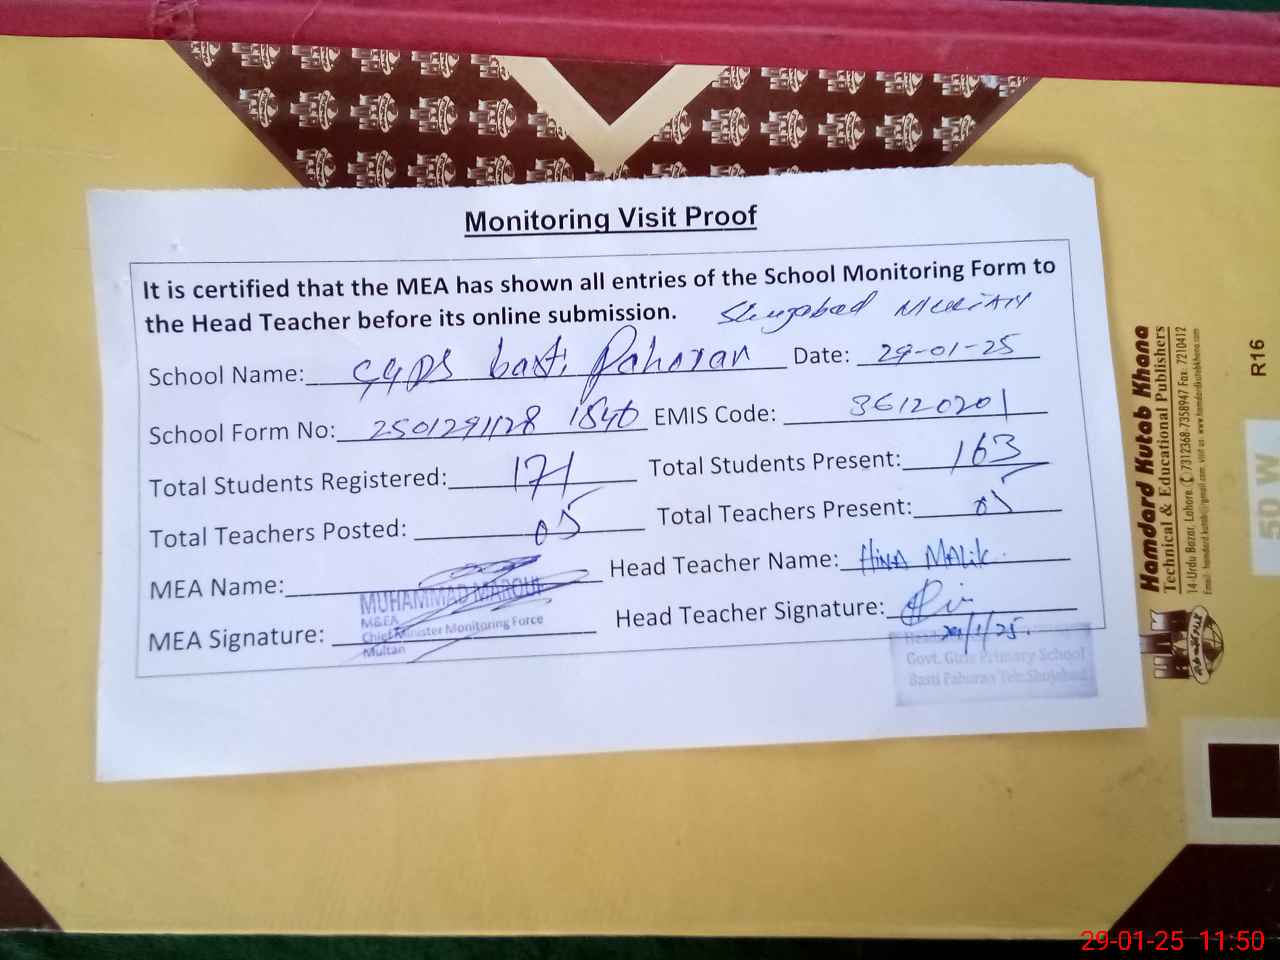 Monitoring Visit Proof
It is certified that the MEA has shown all entries of the School Monitoring Form to
the Head Teacher before its online submission. Shujabad Multan
School Name: GGPS basti Paharan Date: 29-01-25
School Form No: 2501291128 1840 EMIS Code: 36120201
Total Students Registered: 171 Total Students Present: 163
Total Teachers Posted: 05 Total Teachers Present: 05
MEA Name: Head Teacher Name: HINA MALik.
MUHAMMAD
M&EA
Chief Minister Monitoring Force
Multan
MEA Signature: Head Teacher Signature:
29/1/25.
Govt. Girls Primary School
Basti Paharan Teh: Shujabad
Hamdard Kutab Khana
Technical & Educational Publishers
14-Urdu Bazar, Lahore. 7312368-7358947 Fax: 7210412
R16
50 W
29-01-25 11:50